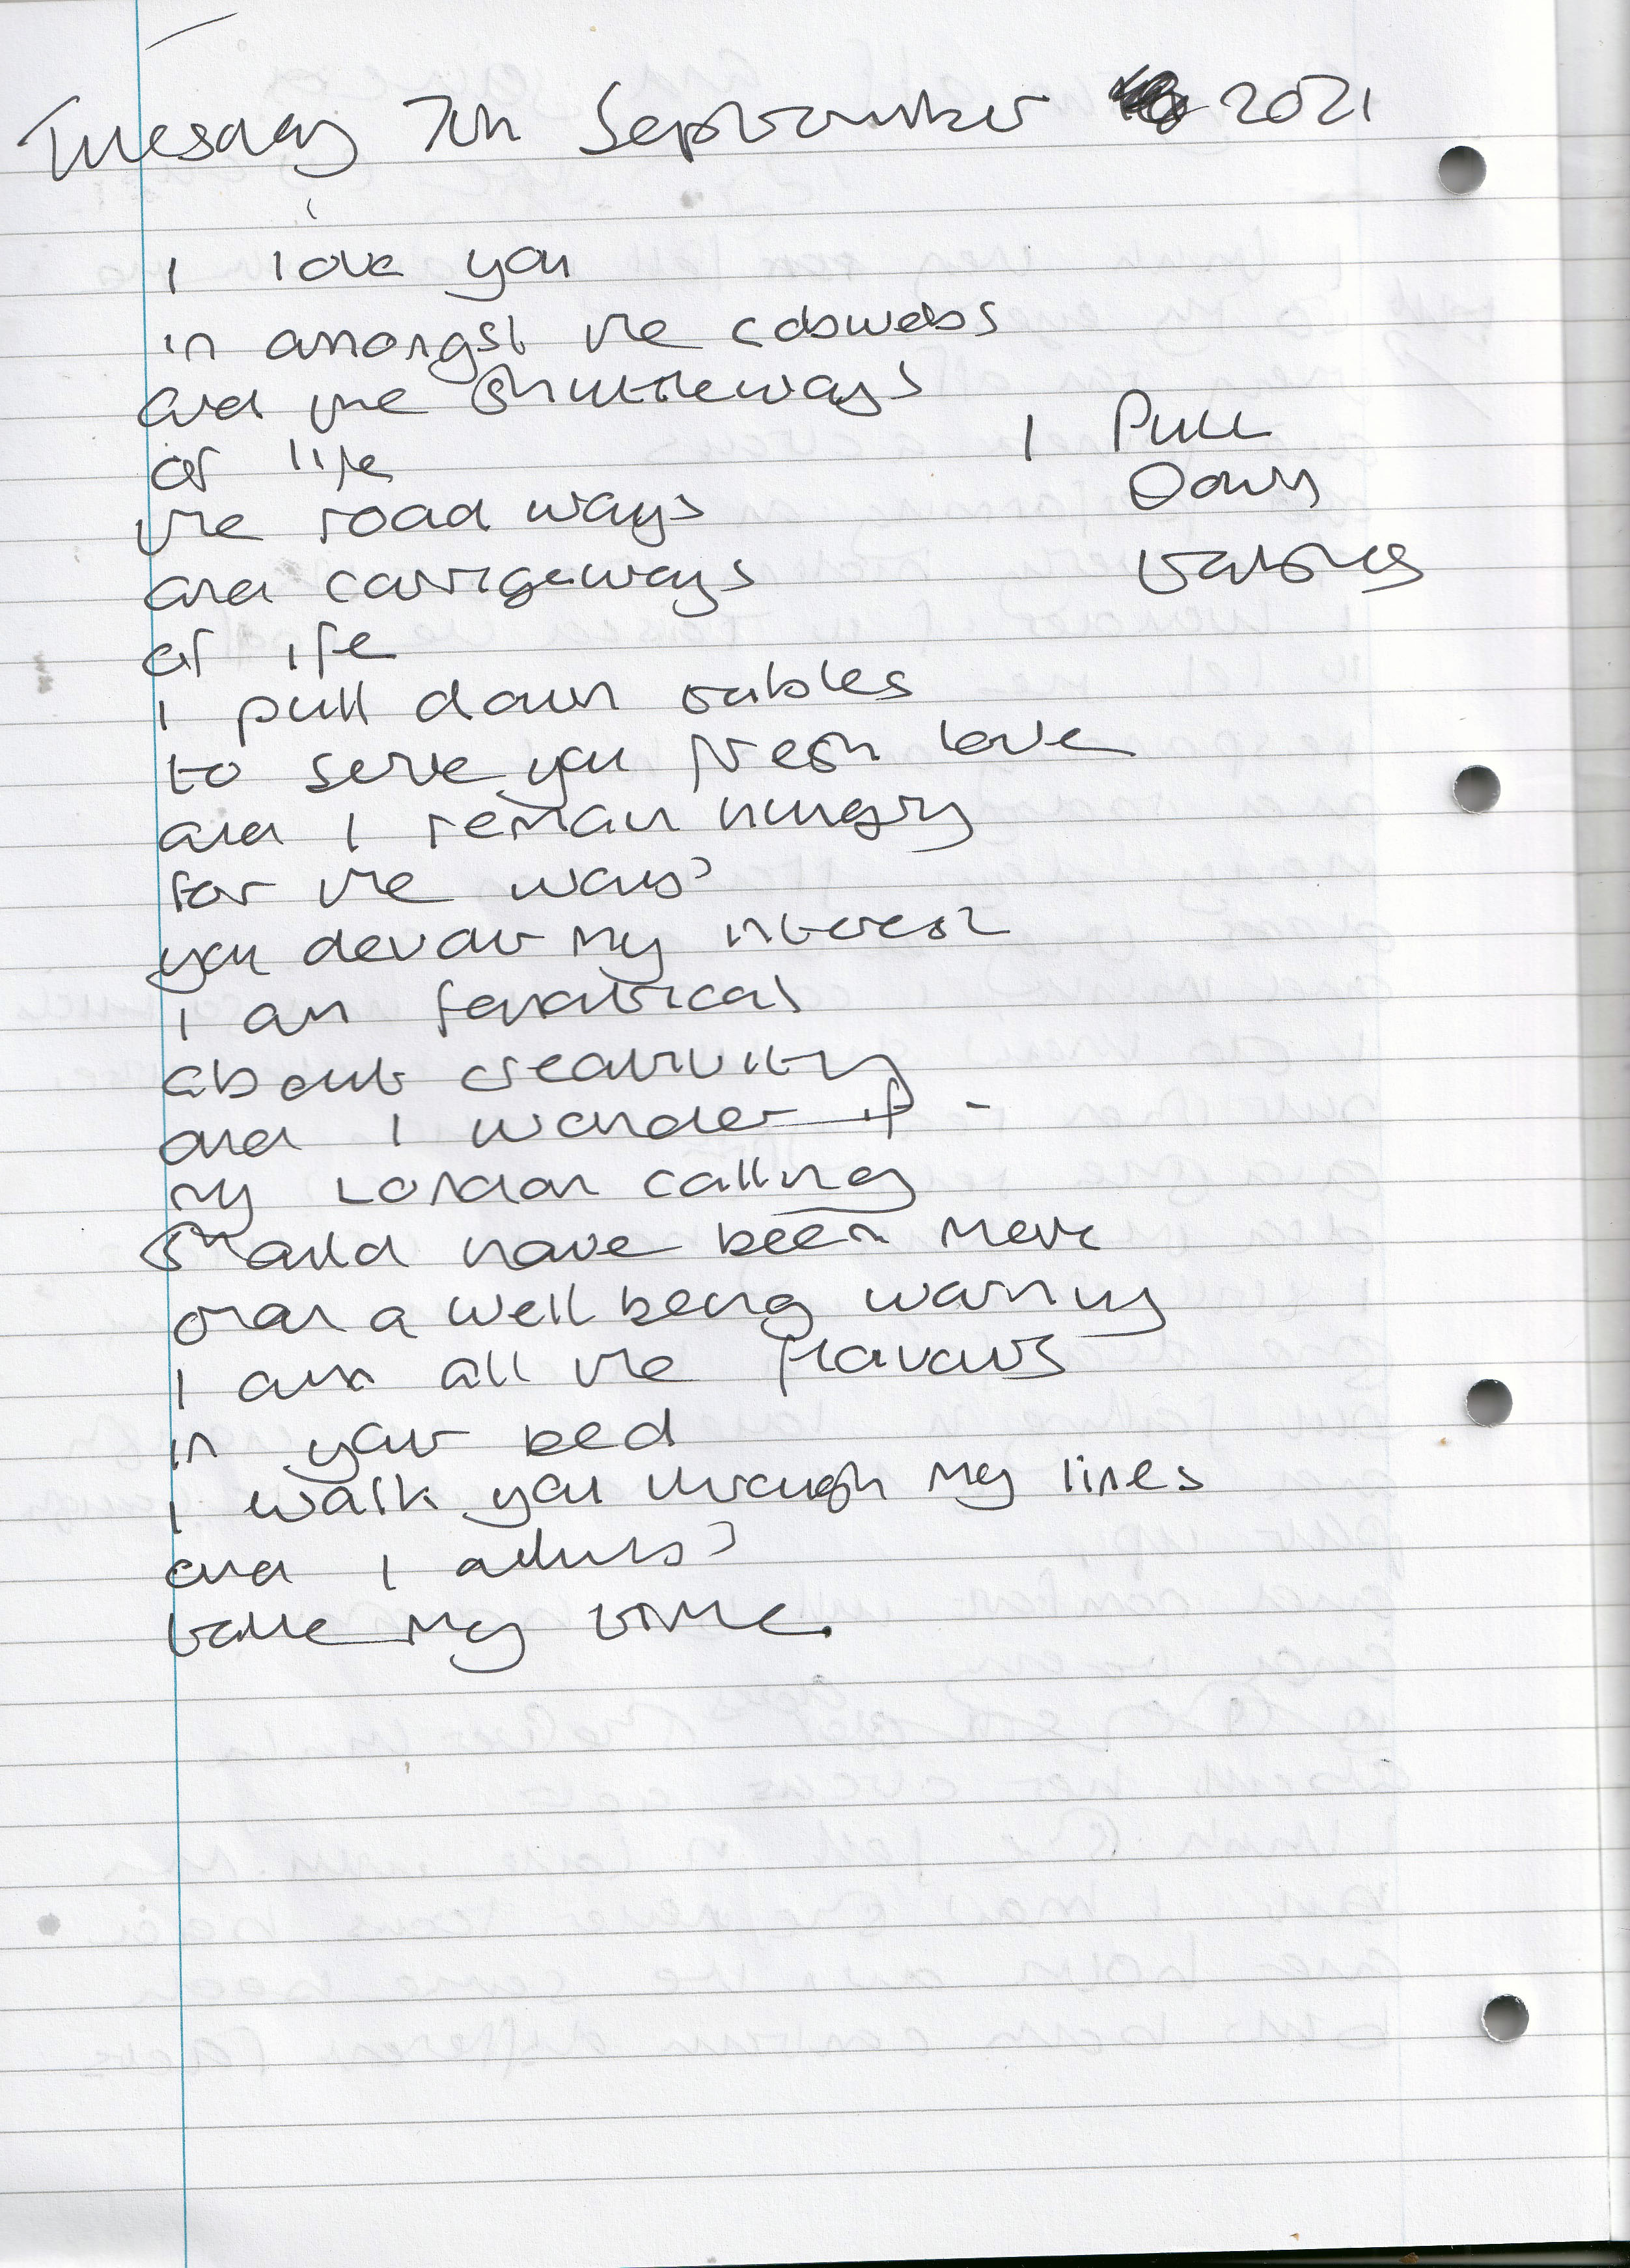 Tuesday 7th September 2021
I love you
in amongst the cobwebs
and the Shuttleways
of life
the road ways
and carrigeways
of life
I pull down tables
to serve you fresh love
and I remain hungry
for the ways
you devour my interest
I am fanatical
about creativity
and I wonder if -
my London calling
Should have been more
than a well being warning
I am all the flavours
in your bed
I walk you through my lines
and I always
take my time.
I Pull
Down
tables